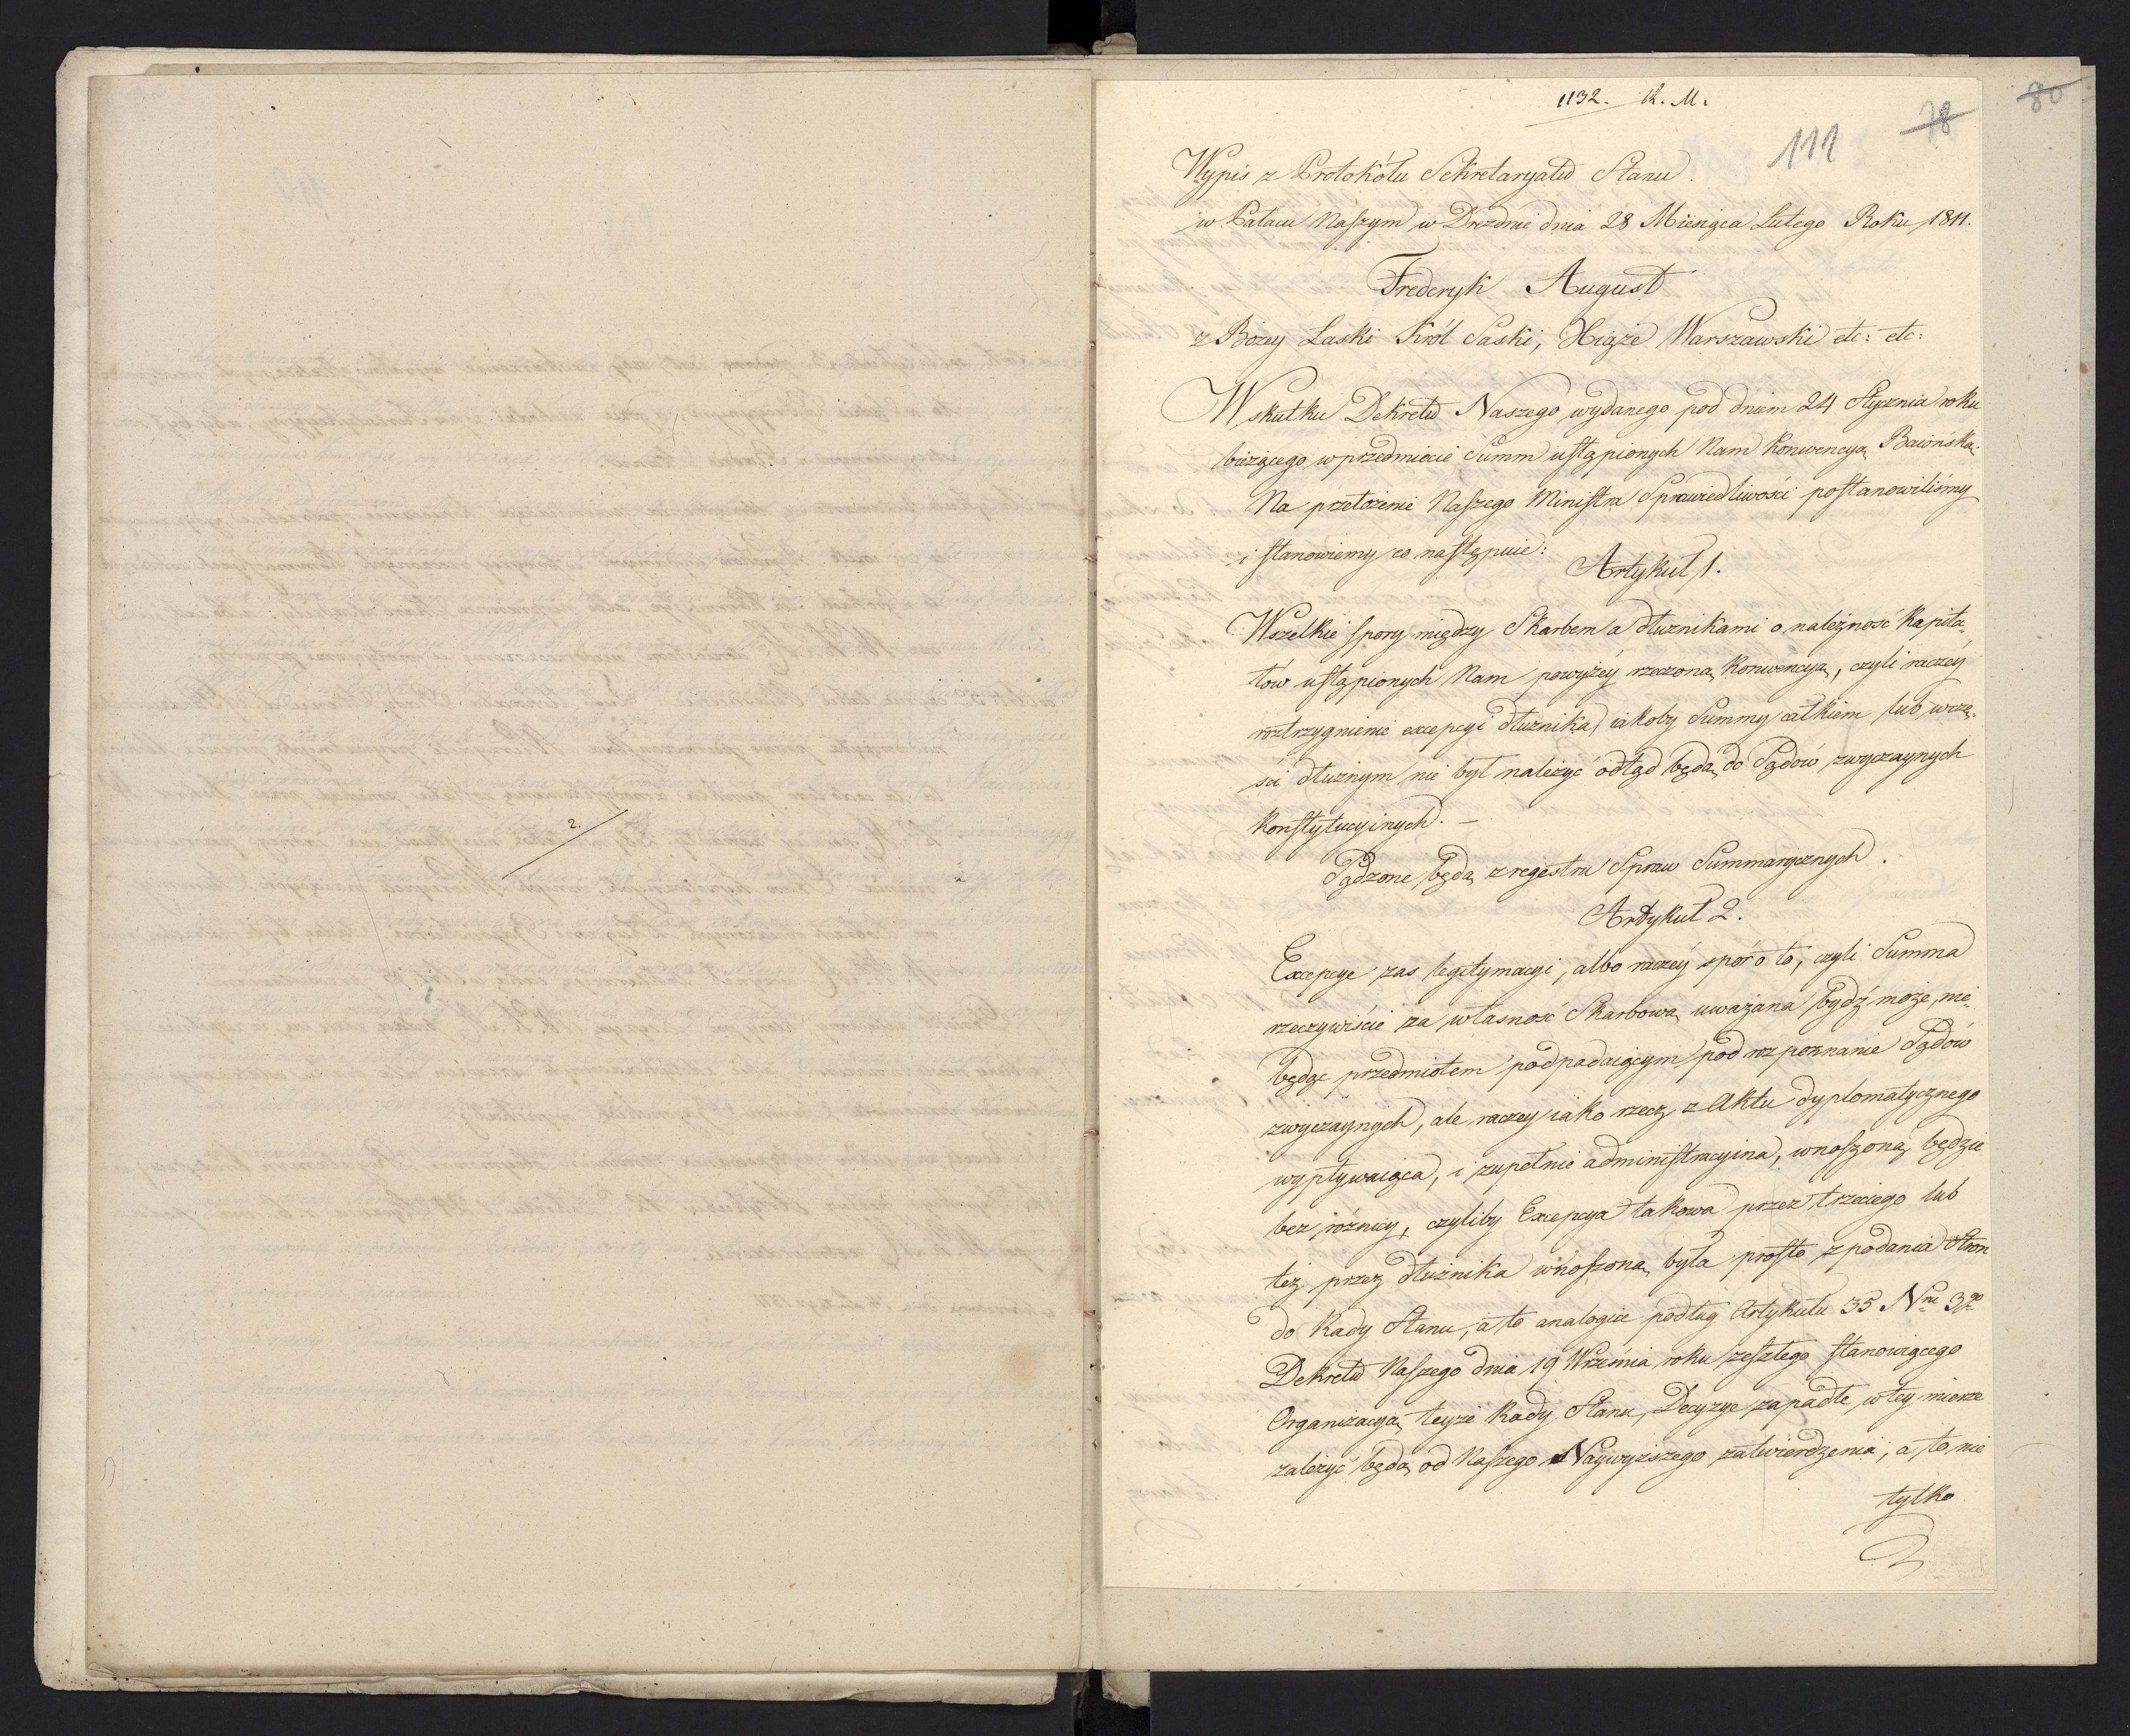 2.
1132. K. M.
78
80
111
Wypis z Protokółu Sekretaryatu Stanu.
w Pałacu Naszym w Dreźnie dnia 28 Miesiąca Lutego Roku 1811.
Frederyk August
z Bożey Łaski Król Saski, Xiąże Warszawski etc: etc:
W skutku Dekretu Naszego wydanego pod dniem 24 Stycznia roku
bieżącego w przedmiocie Summ ustąpionych Nam Konwencyą Baiońską.
Na przełożenie Naszego Ministra Sprawiedliwości postanowiliśmy
i stanowiemy co następuie:
Artykuł 1.
Wszelkie spory między Skarbem a dłużnikami o należność Kapita-
łów ustąpionych Nam powyżéy rzeczoną Konwencyą, czyli raczéy
roztrzygnienie excepcyi dłużnika, iakoby Summy całkiem lub w czę-
ści dłużnym nie był należyć odtąd będą do Sądów zwyczaynych
Konstytucyinych. —
Sądzone będą z regestru Spraw Summarycznych.
Artykuł 2.
Excepcye zas legitymacyi, albo raczéy spór o to, czyli Summa
rzeczywiście za własność Skarbową uważana bydź może, nie-
będąc przedmiotem podpadaiącym pod rozpoznanie Sądów
zwyczaynych, ale raczey iako rzecz z Aktu dyplomatycznego
wypływaiąca, i zupełnie administracyina, wnoszoną będzie
bez różnicy, czyliby Excepcya takowa przez trzeciego lub
też przez dłużnika wnoszoną była prosto z podania Stron
do Rady Stanu, a to analogice podług Artykułu 35 Nru 3go
Dekretu Naszego dnia 19 Września roku zeszłego stanowiącego
Organizacyą teyże Rady Stanu, Decyzye zapadłe w tey mierze
zależyć będą od Naszego Naywyższego zatwierdzenia, a to nie
tylko